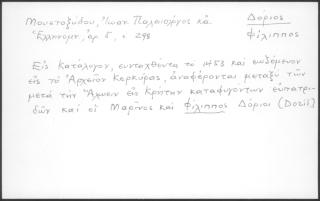 Μουστοξύδου, Ἰωαν. Παλαιολόγος κἀ
Δόριος
Ἑλληνομν, ἀρ. 5, σ 298
Φίλιππος
Εἰς Κατάλογον, συνταχθέντα τὸ 1453 καὶ σωζόμενον
εἰς τὸ Ἀρχεῖον Κερκύρας, ἀναφέρονται μεταξὺ τῶν
μετὰ τὴν Ἅλωσιν εἰς Κρήτην καταφυγόντων εὐπατρι-
δῶν καὶ οἱ Μαρῖνος καὶ Φίλιππος Δόριοι (Doril)